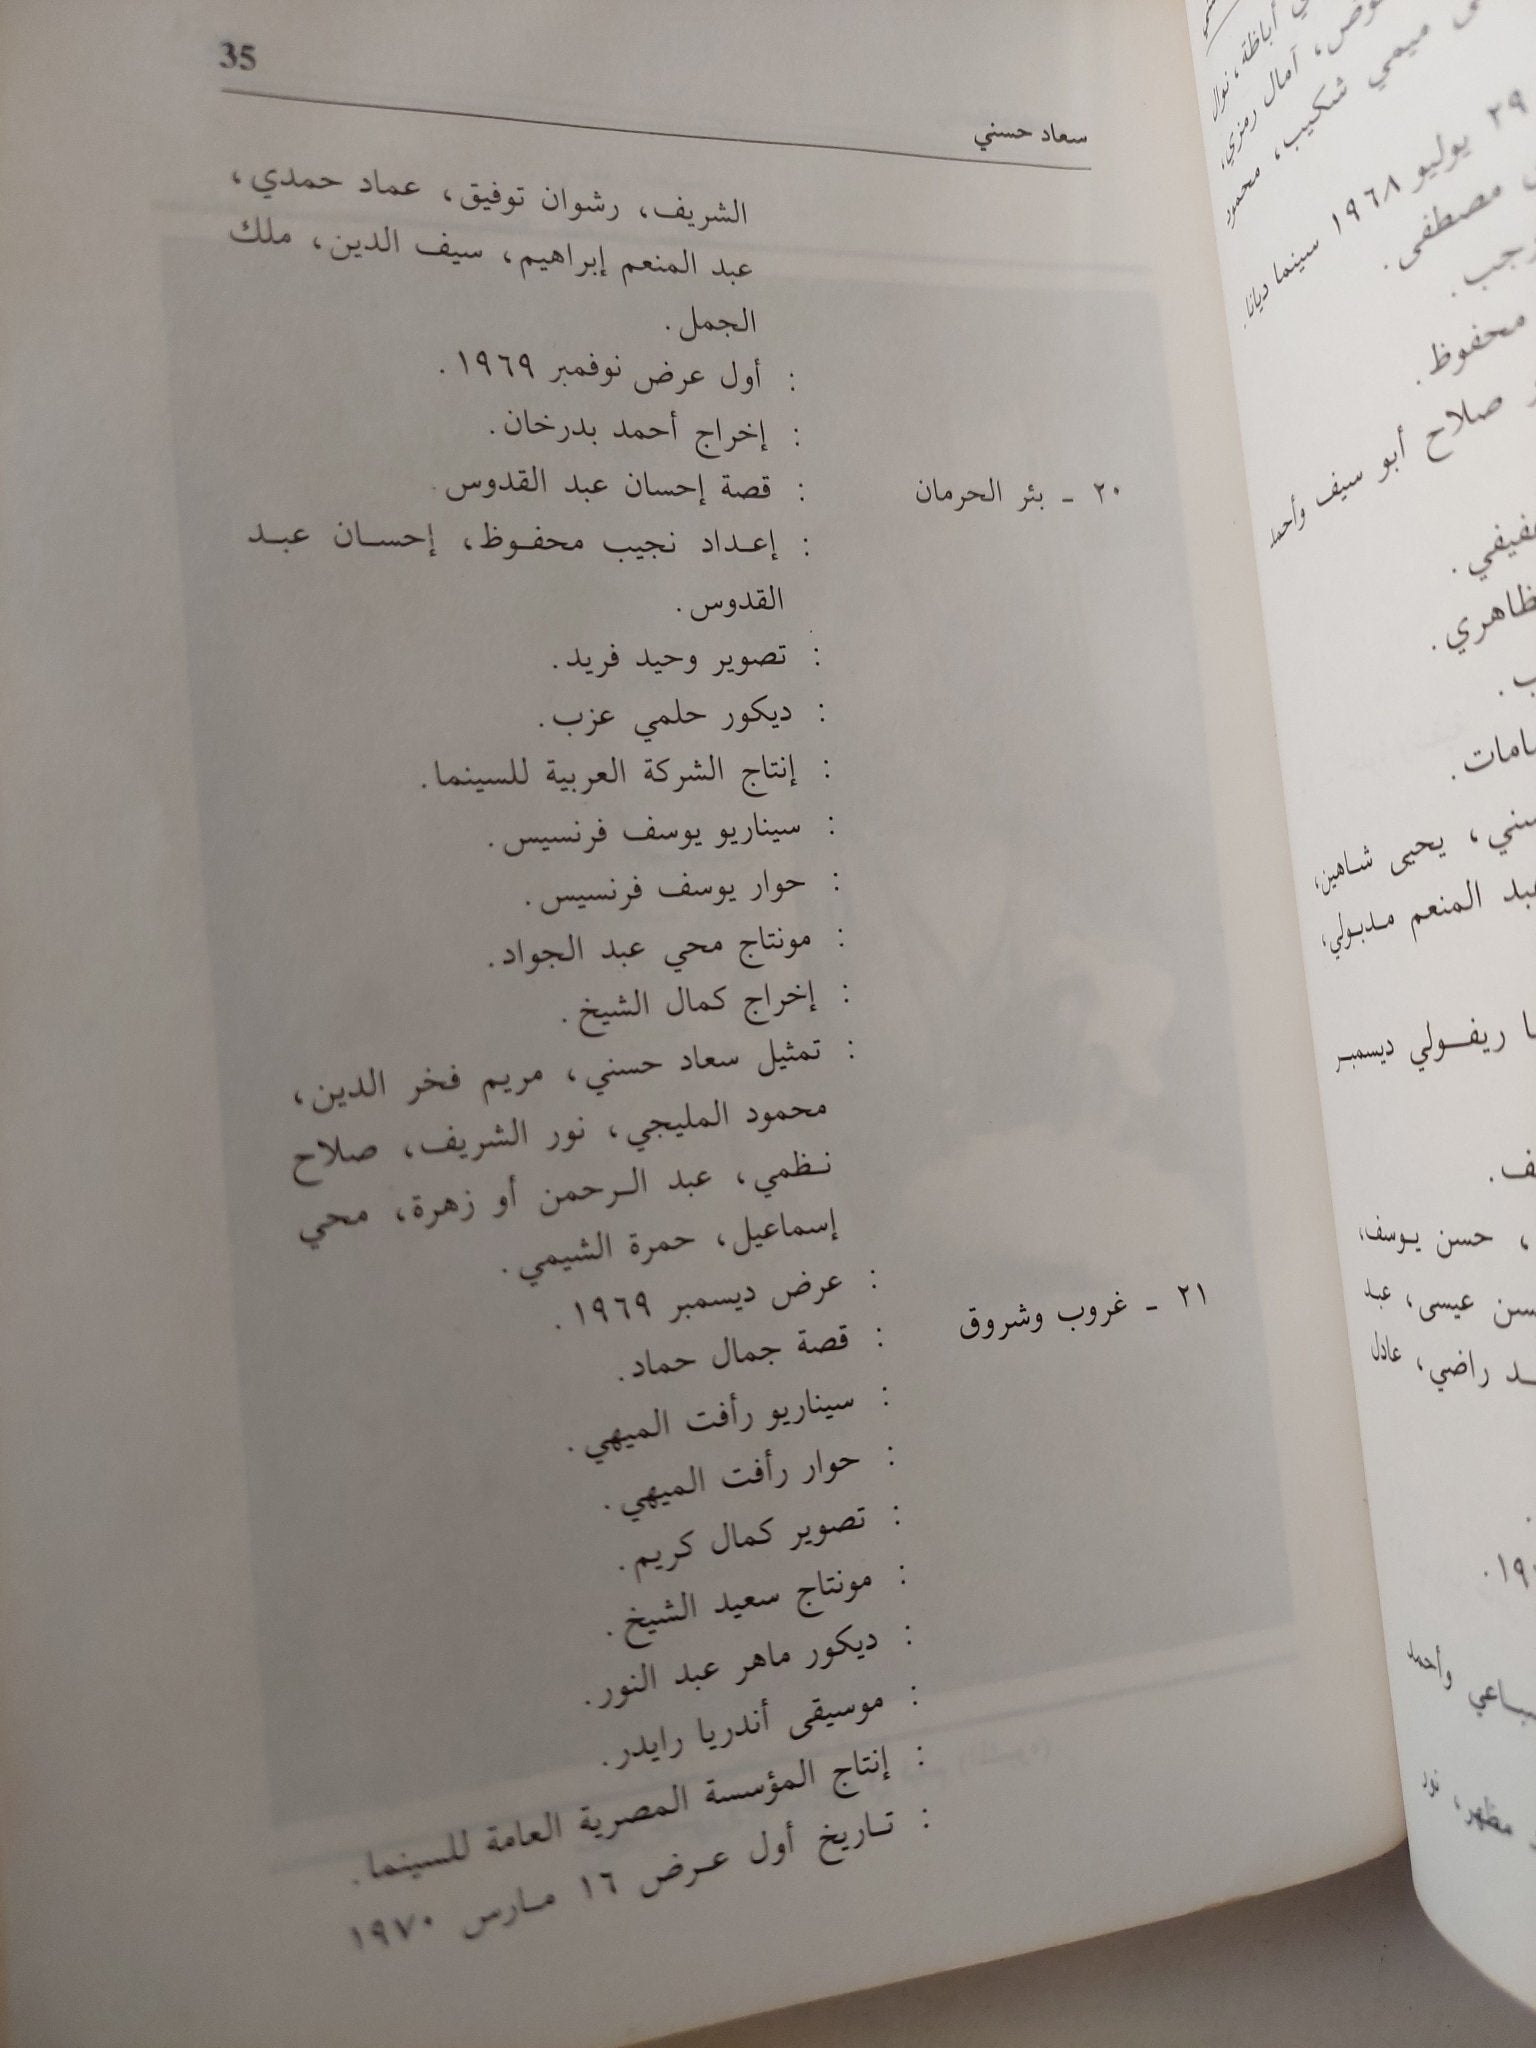 35
سعاد حسني
الشريف، رشوان توفيق، عماد حمدي،
عبد المنعم إبراهيم، سيف الدين، ملك
الجمل.
: أول عرض نوفمبر ١٩٦٩.
: إخراج أحمد بدرخان.
٢٠ ـ بئر الحرمان : قصة إحسان عبد القدوس.
: إعداد نجيب محفوظ، إحسان عبد
القدوس.
: تصوير وحيد فريد.
: ديكور حلمي عزب.
: إنتاج الشركة العربية للسينما.
: سيناريو يوسف فرنسيس.
: حوار يوسف فرنسيس.
: مونتاج محي عبد الجواد.
: إخراج كمال الشيخ.
: تمثيل سعاد حسني، مريم فخر الدين،
محمود المليجي، نور الشريف، صلاح
نظمي، عبد الرحمن أو زهرة، محي
إسماعيل، حمرة الشيمي.
: عرض ديسمبر ١٩٦٩.
٢١ ـ غروب وشروق : قصة جمال حماد.
: سيناريو رأفت الميهي.
: حوار رأفت الميهي.
: تصوير كمال كريم.
: مونتاج سعيد الشيخ.
: ديكور ماهر عبد النور.
: موسيقى أندريا رايدر.
: إنتاج المؤسسة المصرية العامة للسينما.
: تاريخ أول عرض ١٦ مارس ١٩٧٠
أباظة، نوال
آمال رمزي،
ميمي شكيب، محمود
٢٩ يوليو ١٩٦٨ سينما ديانا.
مصطفى.
محفوظ.
صلاح أبو سيف وأحمد
يحيى شاهين،
عبد المنعم مدبولي،
ريفولي ديسمبر
، حسن يوسف،
عيسى، عبد
راضي، عادل
وأحمد
مظهر، نور